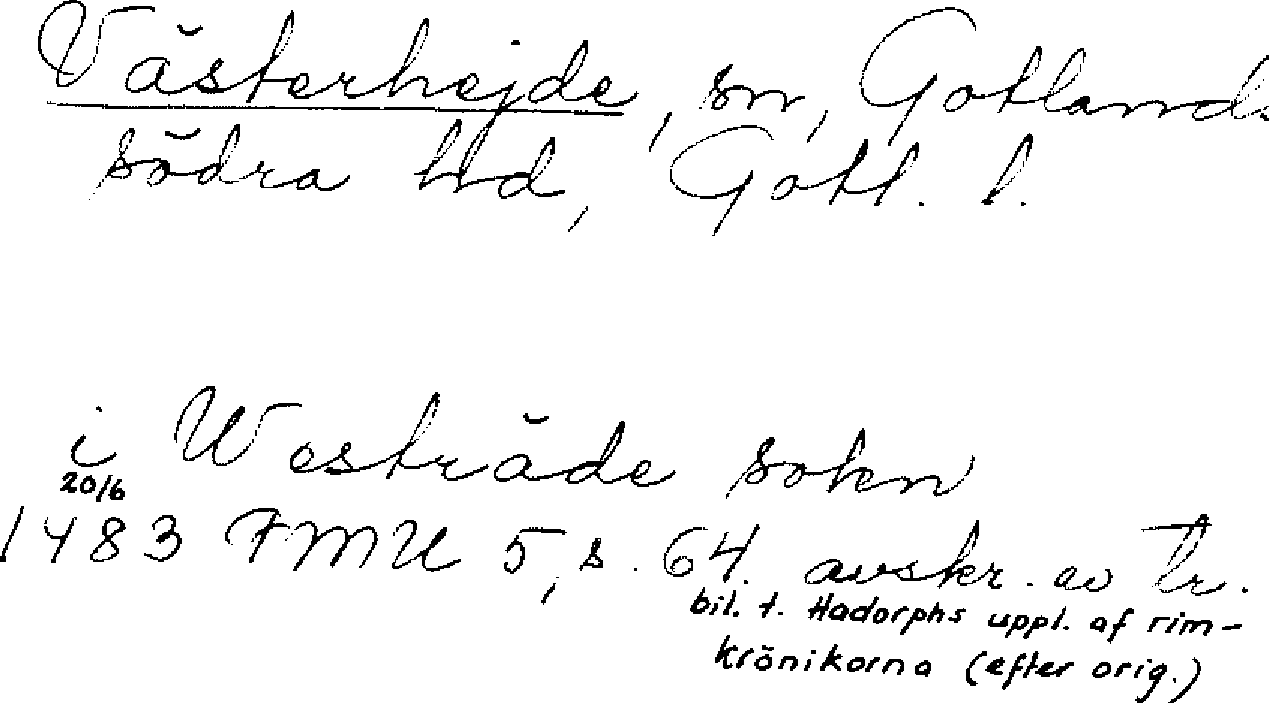 Västerhejde, sn, Gotlands
södra hd, Gotl. l.
i Westräde sokn
20/6
1483 FMU 5, s. 64. avskr. av tr.
bil. t. Hadorphs uppl. af rim-
krönikorna (efter orig.)